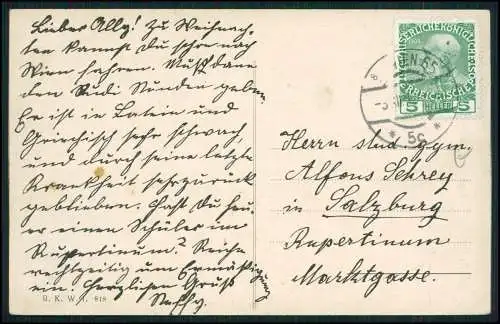 Lieber Ally! Zu Weihnach-
ten kannst Du schon nach
Wien fahren. Mußt dann
den Rudi Stunden geben.
Er ist in Latein und
Griechisch sehr schwach
und durch seine letzte
Krankheit sehr zurück
geblieben. Hast Du heu-
er einen Schüler im
Rupertinum? Reiche
rechtzeitig um Ermäßigung
ein. Herzlichen Gruß
B. K. W. I. 818
KAISERLICHE KÖNIGLICHE
ÖSTERREICHISCHE POST
5 HELLER 5
WIEN
* 5c *
Herrn stud. gym.
Alfons Schrey
in Salzburg
Rupertinum
Marktgasse.